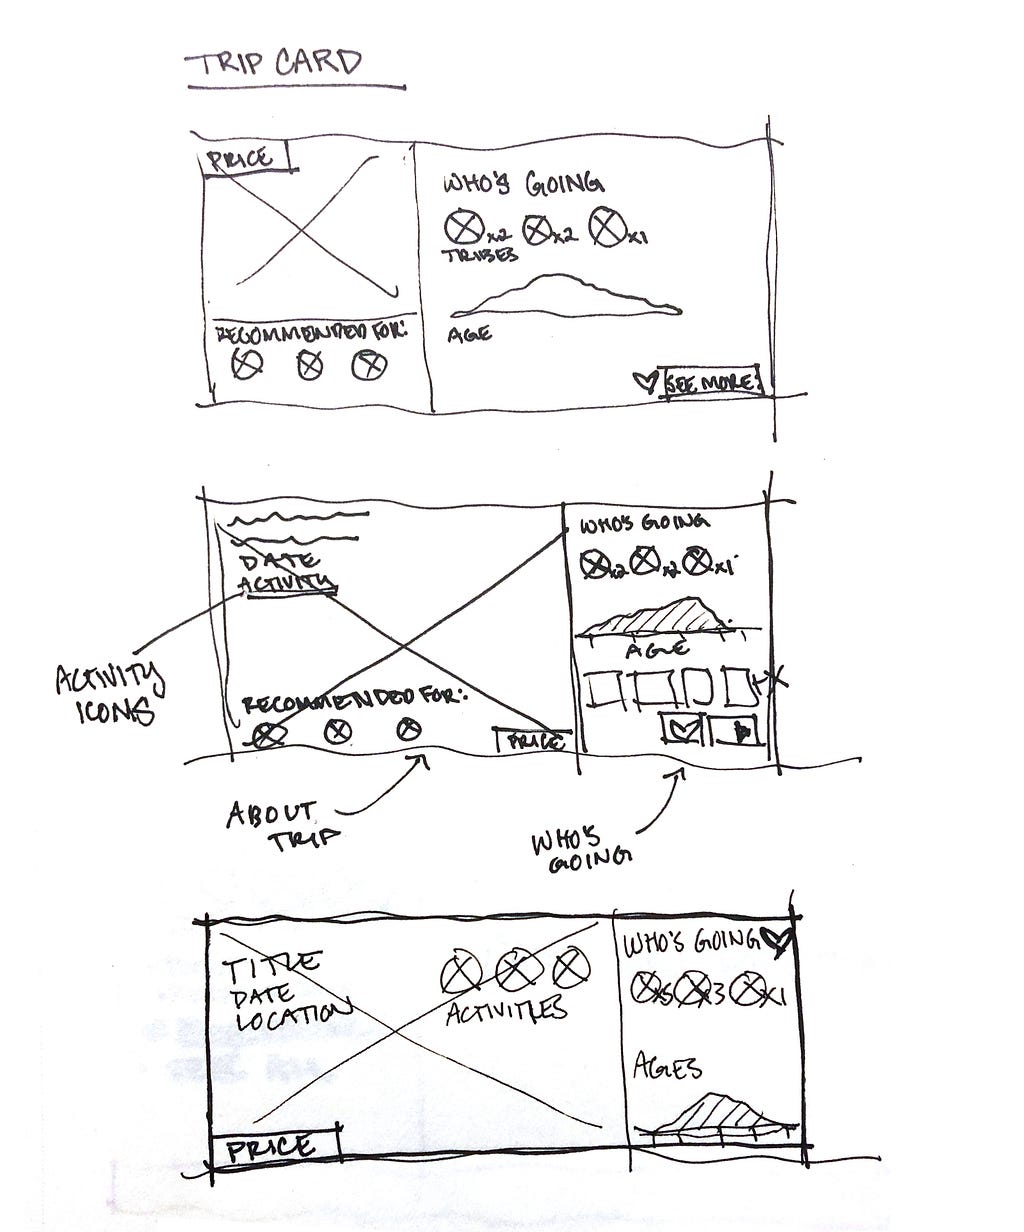 TRIP CARD
PRICE
WHO'S GOING
x2 x2 x1
TRIBES
AGE
RECOMMENDED FOR:
SEE MORE
DATE
ACTIVITY
WHO'S GOING
x2 x2 x1
AGE
ACTIVITY
ICONS
RECOMMENDED FOR:
PRICE
+X
ABOUT
TRIP
WHO'S
GOING
TITLE
DATE
LOCATION
ACTIVITIES
WHO'S GOING
x5 x3 x1
AGES
PRICE